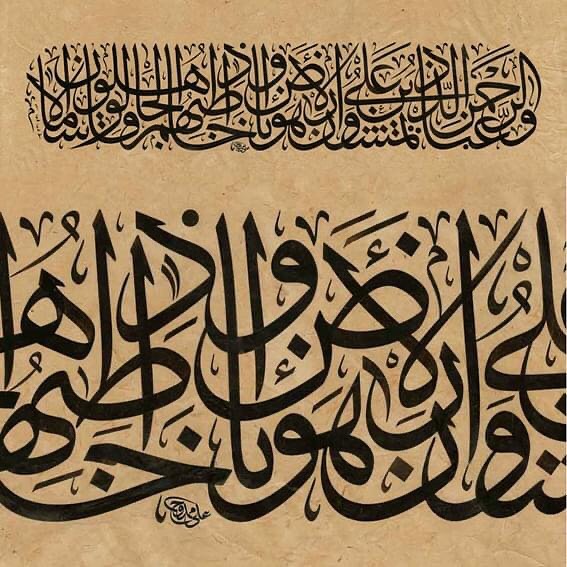 وعباد الرحمن الذين يمشون على الأرض هونا وإذا خاطبهم الجاهلون قالوا سلاما
شون على الأرض هونا وإذا خاطبه